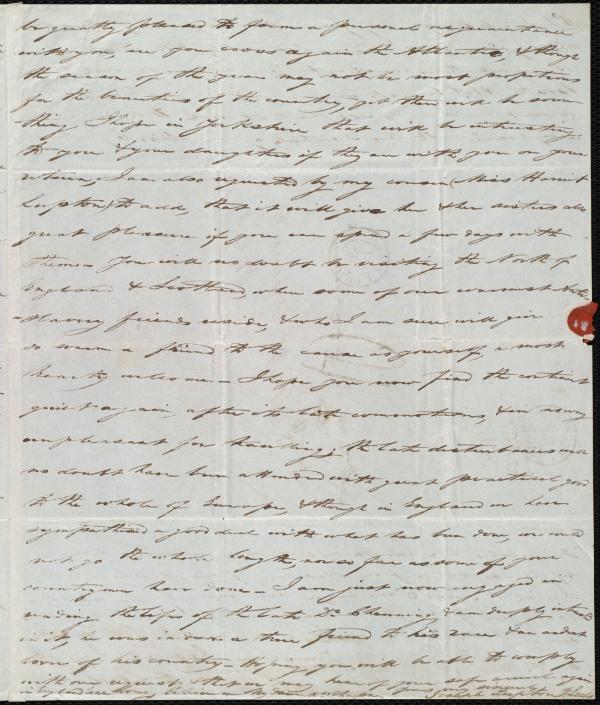 be greatly pleased to form a personal acquaintance
with you, 'ere you cross again the Atlantic, & though
the season of the year may not be most propitious
for the beauties of the country, yet there will be some-
thing I hope in Yorkshire that will be interesting
to you & your daughters if they are with you on your
return, I am also requested by my cousin (Miss Harriet
Lupton) to add, that it will give her & her sisters also
great pleasure if you can spend a few days with
them - You will no doubt be visiting the North of
England & Scotland, where some of our warmest Anti-
slavery friends reside, & who I am sure will give
so warm a friend to the cause as yourself, a most
hearty welcome - I hope you now find the continent
quiet again, after its late commotions, & in no way
unpleasant for travelling, the late disturbances will
no doubt have been attended with great practical good
to the whole of Europe, & though in England we have
sympathised a good deal with what has been done, we could
not go the whole length, nor as far as some of your
countrymen have done - I am just now engaged in
reading the life of the late Dr. Channing, & am deeply interested
in it, he was indeed a true friend to his race & an ardent
lover of his country - Hoping you will be able to comply
with our request & that we may hear of your safe arrival again
in England